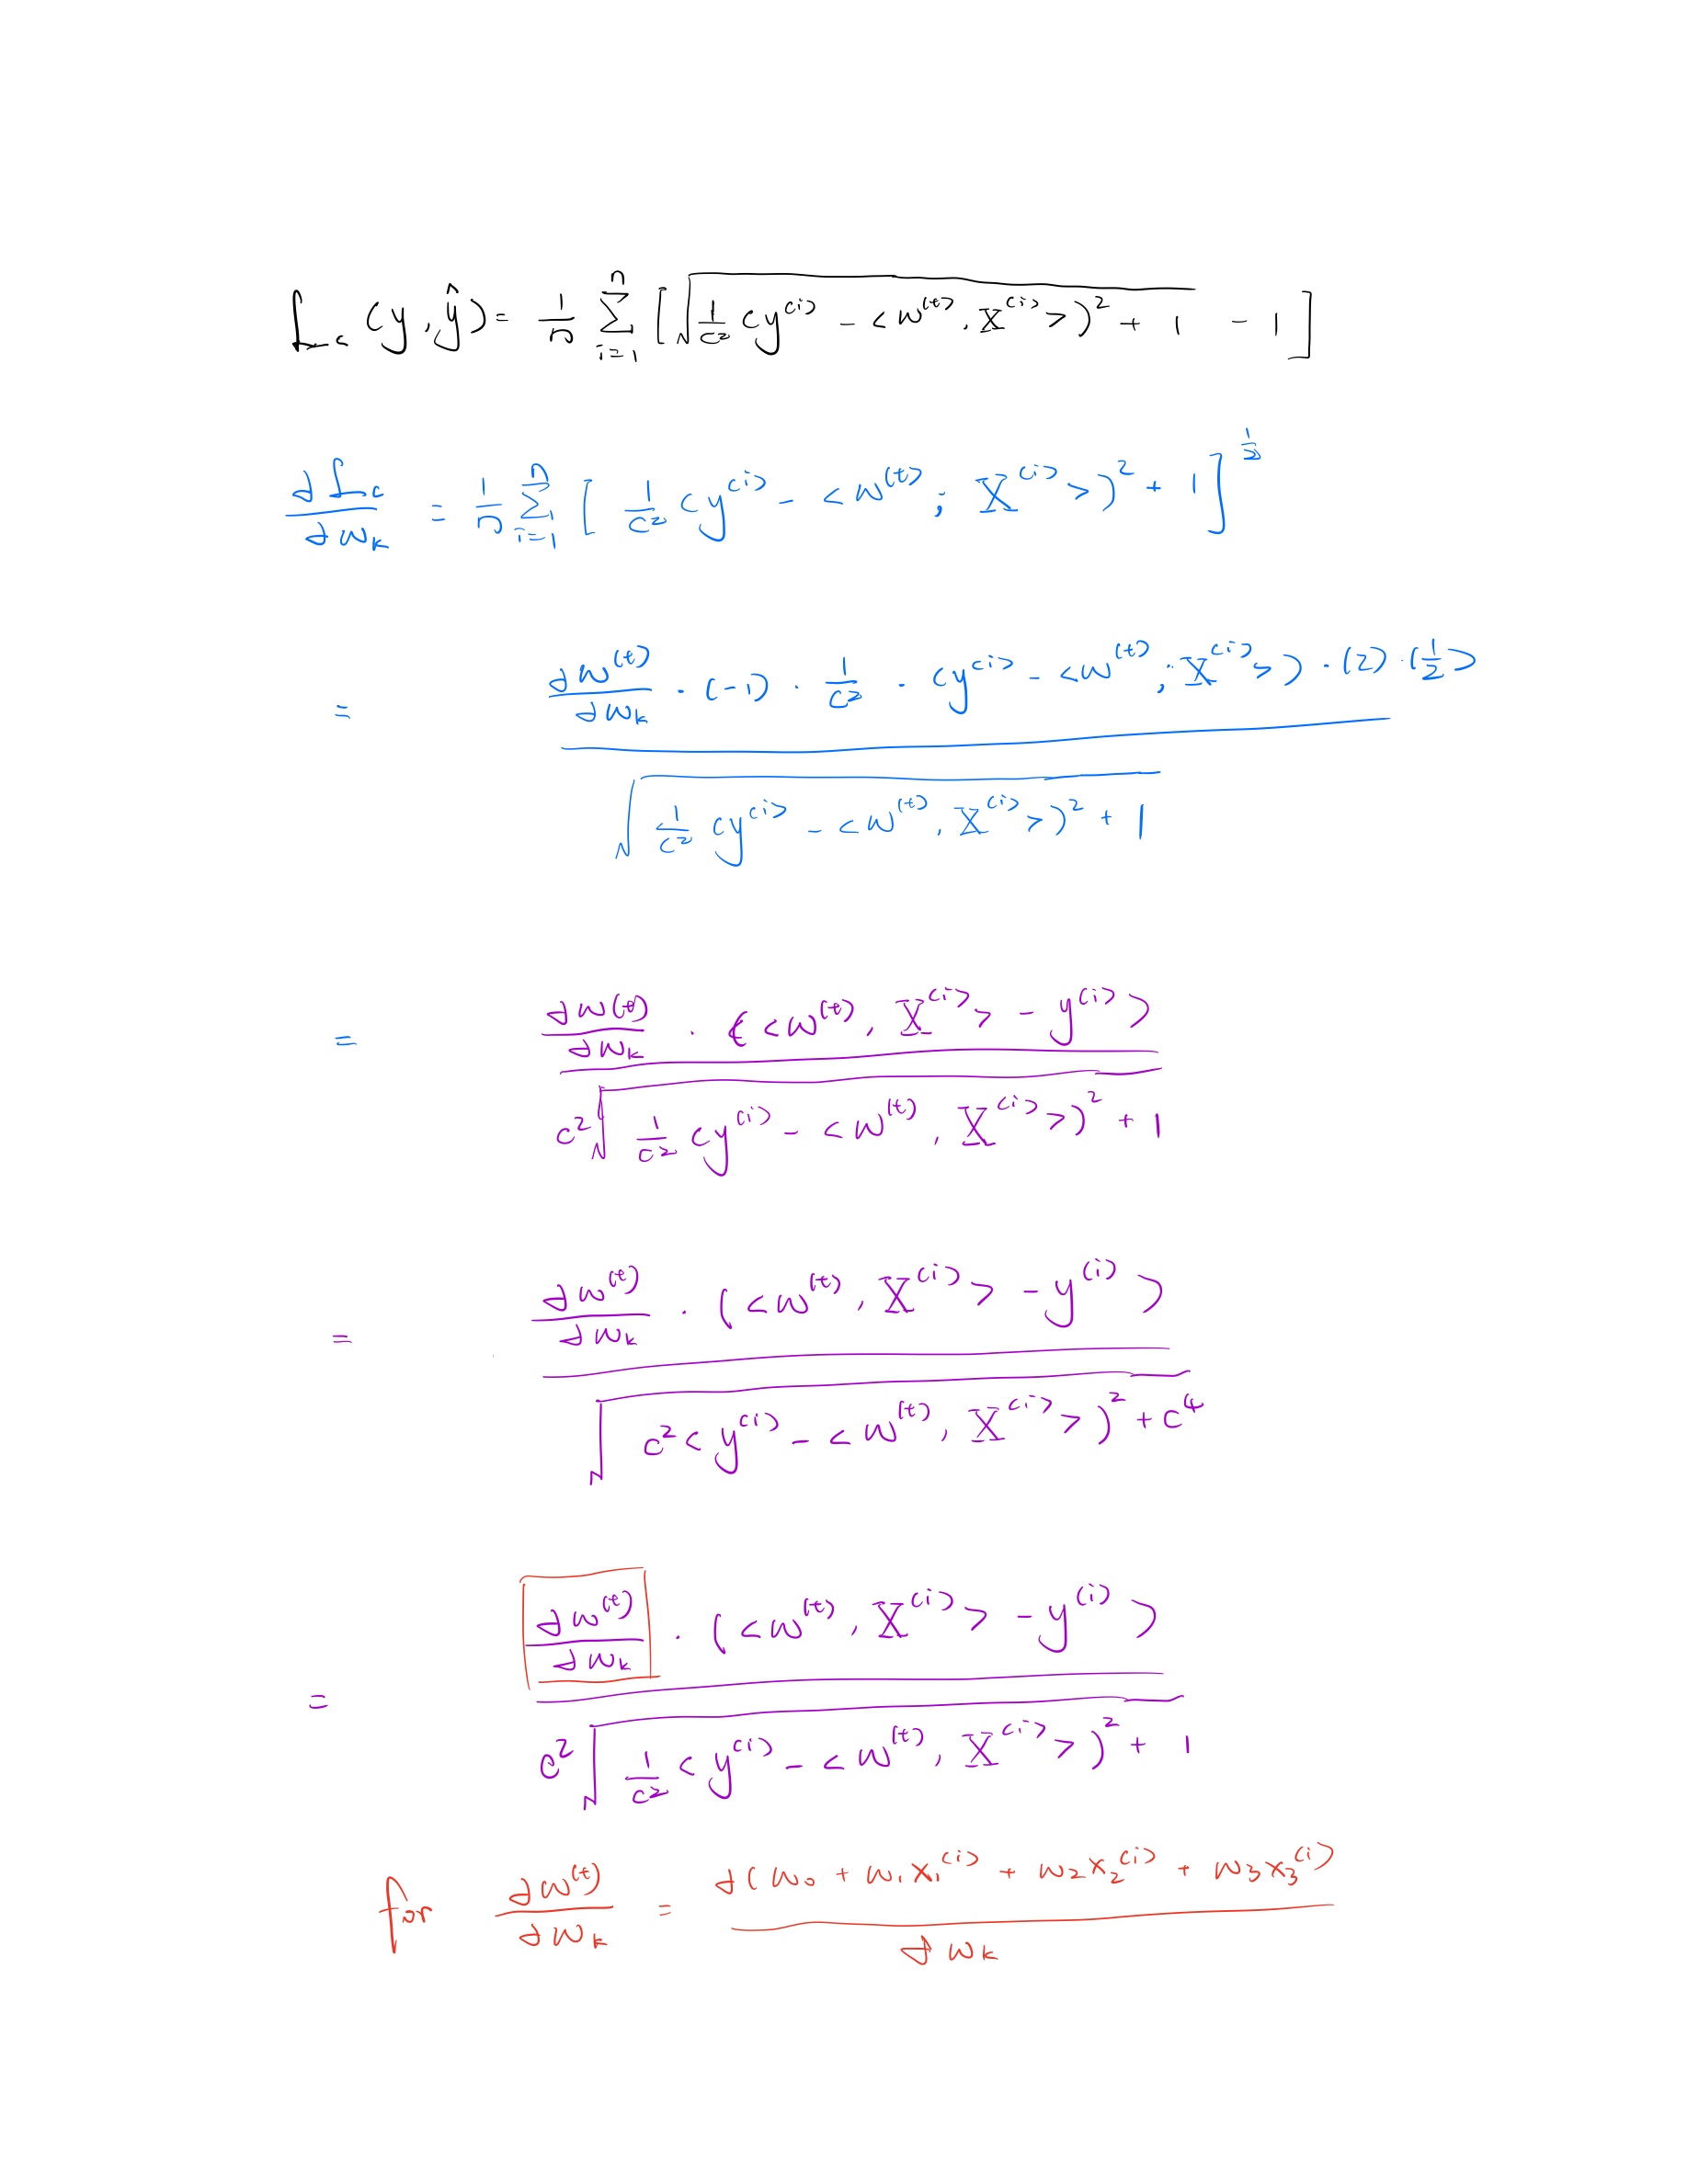 L_c (y, ŷ) = \frac{1}{n} \sum_{i=1}^{n} [ \sqrt{\frac{1}{c^2} (y^{(i)} - <w^{(t)}, X^{(i)}>)^2 + 1} - 1 ]
\frac{∂L_c}{∂w_k} = \frac{1}{n} \sum_{i=1}^{n} [ \frac{1}{c^2} (y^{(i)} - <w^{(t)}; X^{(i)}>)^2 + 1 ]^{\frac{1}{2}}
= \frac{\frac{∂w^{(t)}}{∂w_k} · (-1) · \frac{1}{c^2} · (y^{(i)} - <w^{(t)}; X^{(i)}>) · (2) · (\frac{1}{2})}{\sqrt{\frac{1}{c^2} (y^{(i)} - <w^{(t)}, X^{(i)}>)^2 + 1}}
= \frac{\frac{∂w^{(t)}}{∂w_k} · (<w^{(t)}, X^{(i)}> - y^{(i)})}{c^2 \sqrt{\frac{1}{c^2} (y^{(i)} - <w^{(t)}, X^{(i)}>)^2 + 1}}
= \frac{\frac{∂w^{(t)}}{∂w_k} · (<w^{(t)}, X^{(i)}> - y^{(i)})}{\sqrt{c^2 (y^{(i)} - <w^{(t)}, X^{(i)}>)^2 + c^4}}
= \frac{\frac{∂w^{(t)}}{∂w_k} · (<w^{(t)}, X^{(i)}> - y^{(i)})}{c^2 \sqrt{\frac{1}{c^2} (y^{(i)} - <w^{(t)}, X^{(i)}>)^2 + 1}}
for \frac{∂w^{(t)}}{∂w_k} = \frac{∂(w_0 + w_1 x_1^{(i)} + w_2 x_2^{(i)} + w_3 x_3^{(i)})}{∂w_k}